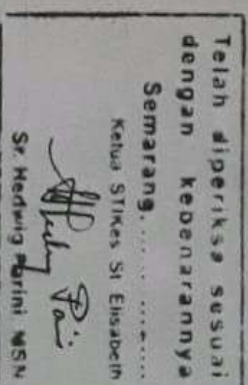 Telah diperiksa sesuai
dengan kebenarannya
Semarang,..............
Ketua STIKes St Elisabeth
Sr. Hedwig Parini MSN